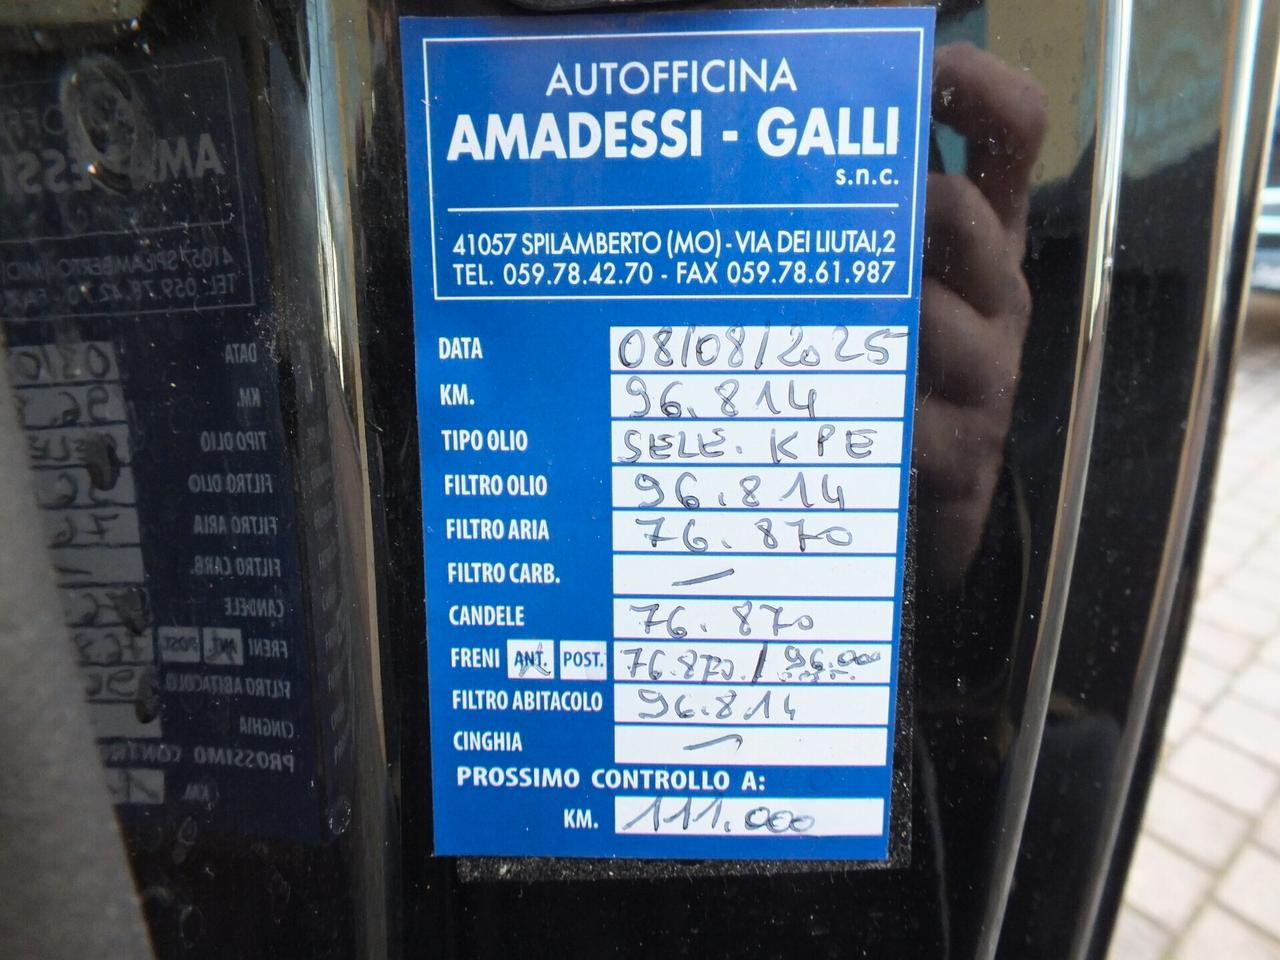 AUTOFFICINA
AMADESSI - GALLI
s.n.c.
41057 SPILAMBERTO (MO) - VIA DEI LIUTAI, 2
TEL. 059.78.42.70 - FAX 059.78.61.987
DATA 08/08/2025
KM. 96.814
TIPO OLIO SELE. KPE
FILTRO OLIO 96.814
FILTRO ARIA 76.870
FILTRO CARB. —
CANDELE 76.870
FRENI ANT. POST. 76.870 / 96.000
FILTRO ABITACOLO 96.814
CINGHIA —
PROSSIMO CONTROLLO A:
KM. 111.000